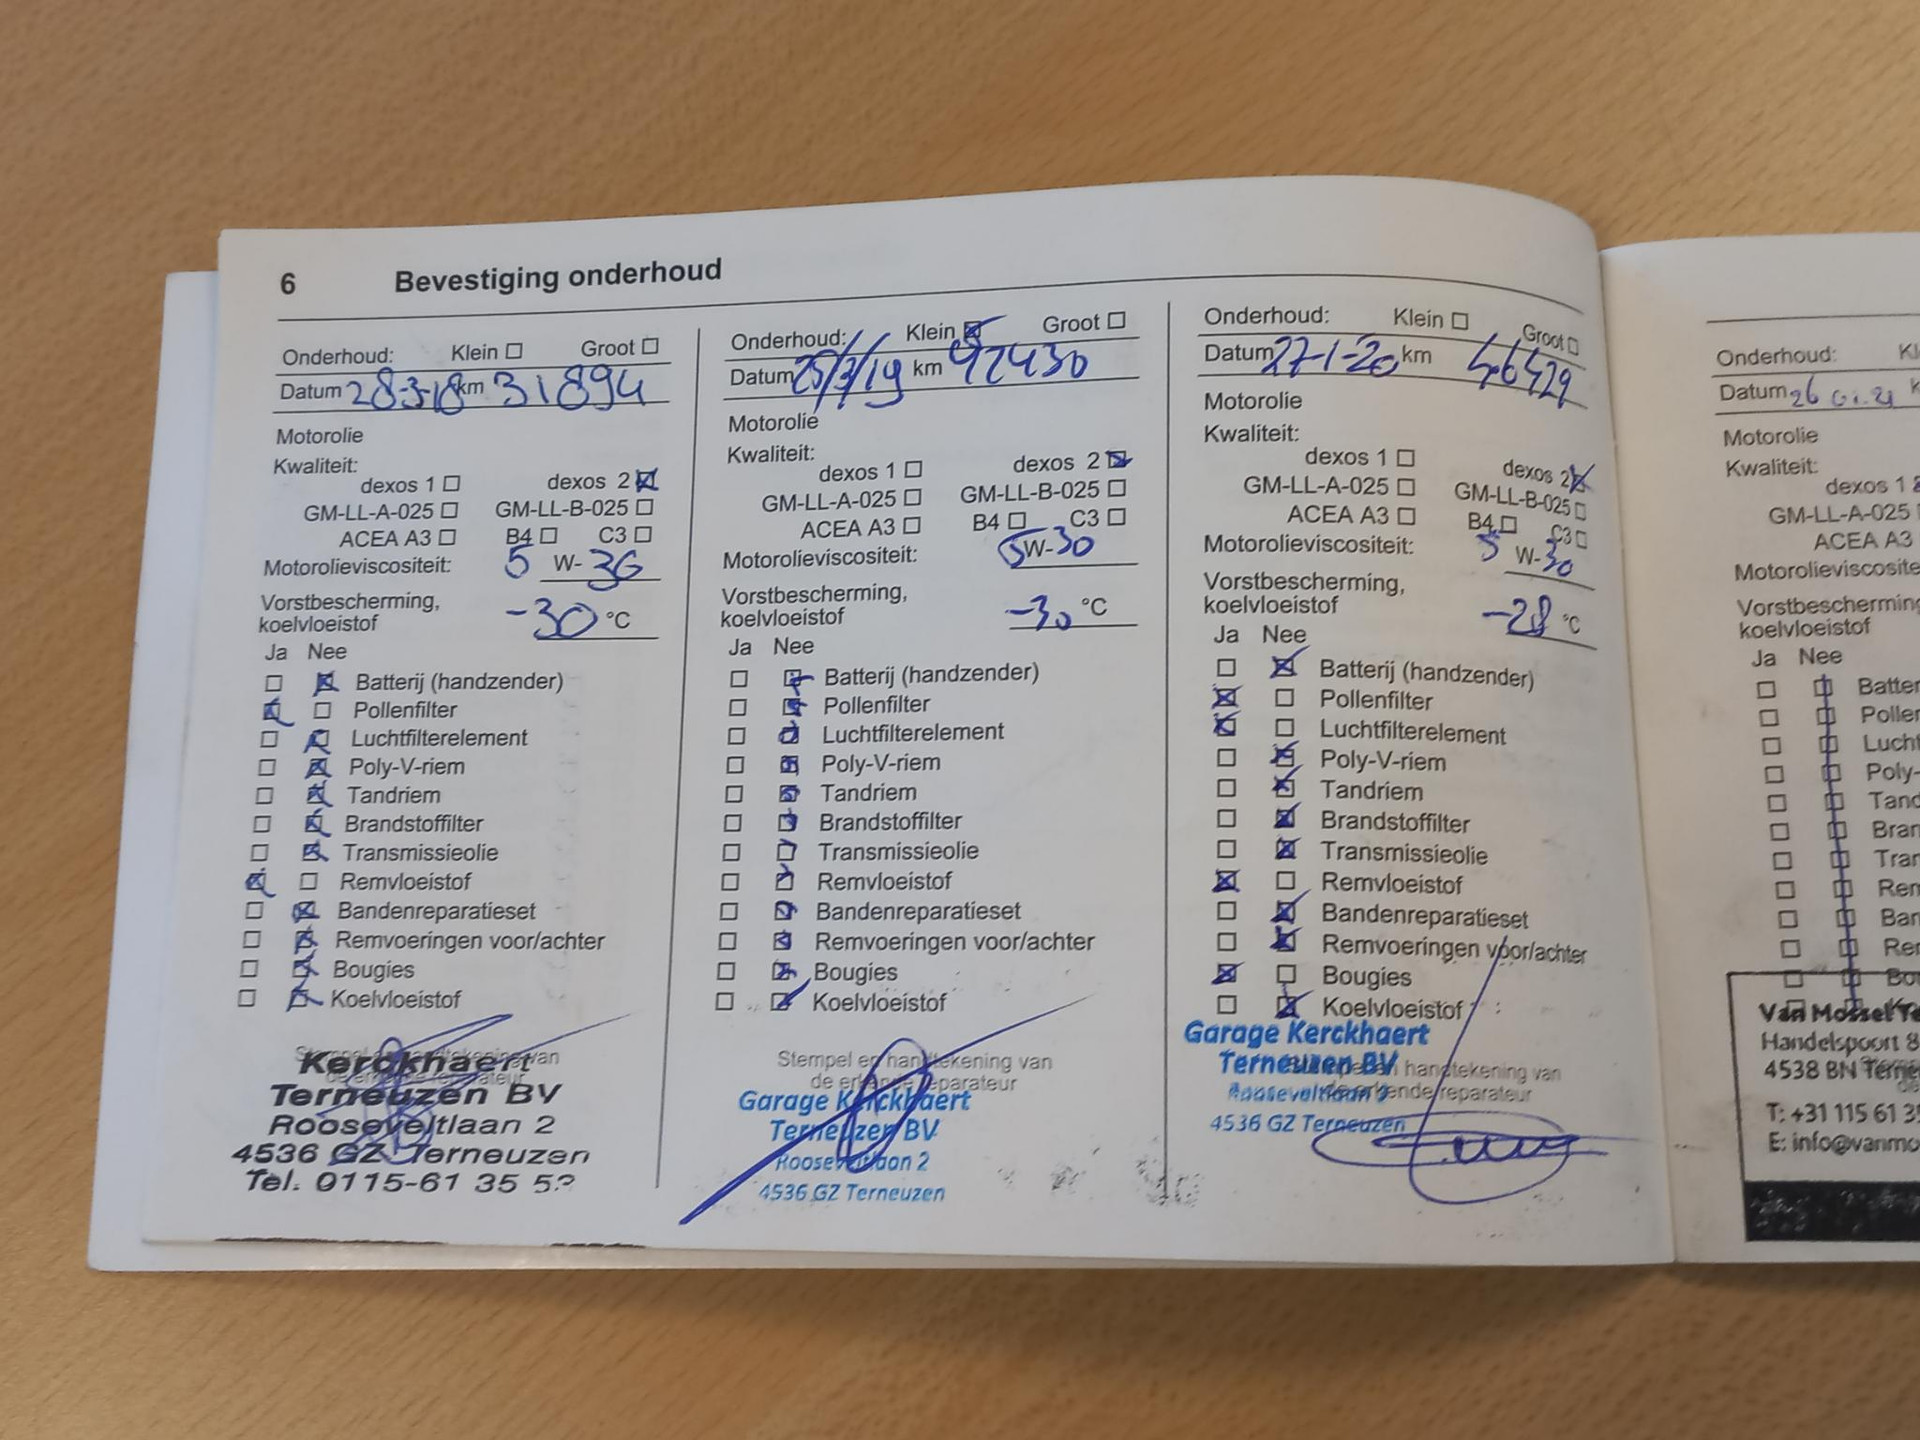 6 Bevestiging onderhoud
Onderhoud: Klein Groot
Datum 28-3-18 km 31894
Motorolie
Kwaliteit:
dexos 1 dexos 2
GM-LL-A-025 GM-LL-B-025
ACEA A3 B4 C3
Motorolieviscositeit: 5 W-30
Vorstbescherming,
koelvloeistof -30 °C
Ja Nee
Batterij (handzender)
Pollenfilter
Luchtfilterelement
Poly-V-riem
Tandriem
Brandstoffilter
Transmissieolie
Remvloeistof
Bandenreparatieset
Remvoeringen voor/achter
Bougies
Koelvloeistof
Kerckhaert
Terneuzen BV
Rooseveltlaan 2
4536 GZ Terneuzen
Tel. 0115-61 35 5
Onderhoud: Klein Groot
Datum 25/3/19 km 42430
Motorolie
Kwaliteit:
dexos 1 dexos 2
GM-LL-A-025 GM-LL-B-025
ACEA A3 B4 C3
Motorolieviscositeit: 5W-30
Vorstbescherming,
koelvloeistof -30 °C
Ja Nee
Batterij (handzender)
Pollenfilter
Luchtfilterelement
Poly-V-riem
Tandriem
Brandstoffilter
Transmissieolie
Remvloeistof
Bandenreparatieset
Remvoeringen voor/achter
Bougies
Koelvloeistof
Stempel en handtekening van
de erkende reparateur
Garage Kerckhaert
Terneuzen BV
Rooseveltlaan 2
4536 GZ Terneuzen
Onderhoud: Klein Groot
Datum 27-1-20 km 46429
Motorolie
Kwaliteit:
dexos 1 dexos 2
GM-LL-A-025 GM-LL-B-025
ACEA A3 B4 C3
Motorolieviscositeit: 5 W-30
Vorstbescherming,
koelvloeistof -28 °C
Ja Nee
Batterij (handzender)
Pollenfilter
Luchtfilterelement
Poly-V-riem
Tandriem
Brandstoffilter
Transmissieolie
Remvloeistof
Bandenreparatieset
Remvoeringen voor/achter
Bougies
Koelvloeistof
Garage Kerckhaert
Terneuzen BV handtekening van
Rooseveltlaan 2 de erkende reparateur
4536 GZ Terneuzen
Onderhoud: Kl
Datum 26 01.21 k
Motorolie
Kwaliteit:
dexos 1
GM-LL-A-025
ACEA A3
Motorolieviscosite
Vorstbescherming
koelvloeistof
Ja Nee
Batter
Pollen
Lucht
Poly-
Tand
Bran
Tran
Rem
Ban
Rem
Bou
Van Mossel Te
Handelspoort 8
4538 BN Terneu
T: +31 115 61 35
E: info@vanmo